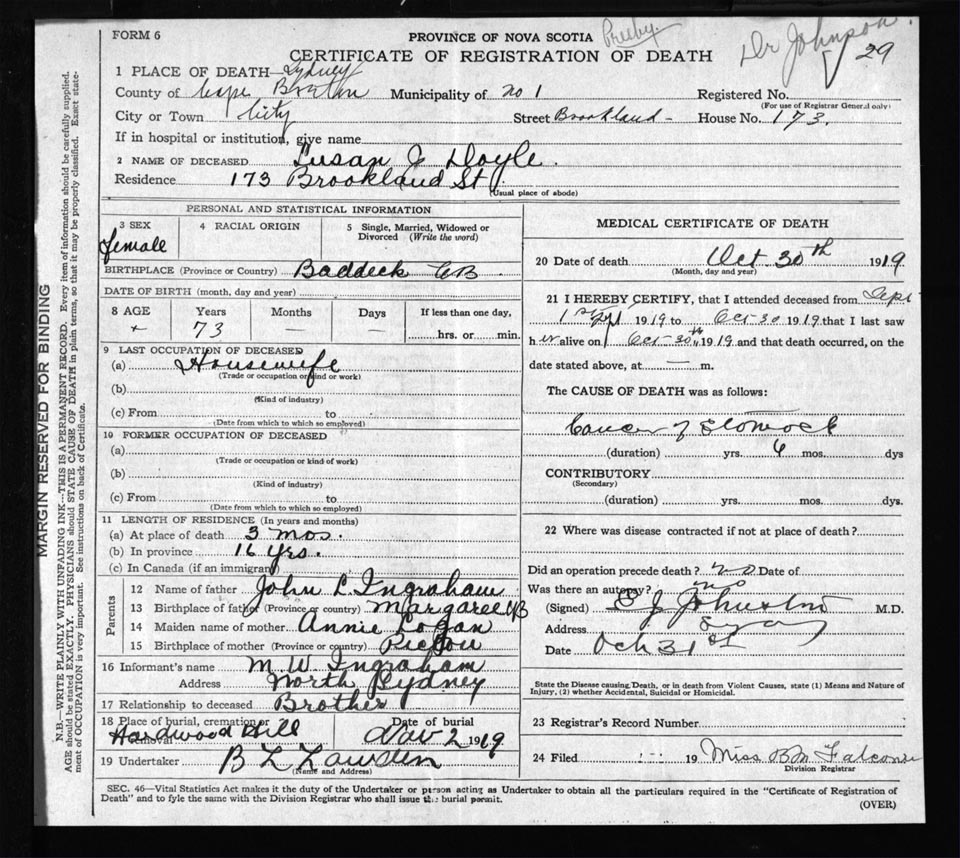 FORM 6
PROVINCE OF NOVA SCOTIA
Presby.
Dr Johnson
29
CERTIFICATE OF REGISTRATION OF DEATH
1 PLACE OF DEATH—Sydney
County of Cape Breton Municipality of no 1 Registered No.
(For use of Registrar General only)
City or Town City Street Brookland House No. 173.
If in hospital or institution, give name
2 NAME OF DECEASED Susan J Doyle.
Residence 173 Brookland St
(Usual place of abode)
PERSONAL AND STATISTICAL INFORMATION
3 SEX female
4 RACIAL ORIGIN
5 Single, Married, Widowed or Divorced (Write the word)
BIRTHPLACE (Province or Country) Baddeck CB
DATE OF BIRTH (month, day and year)
8 AGE Years Months Days If less than one day,
+ 73 — — hrs. or min.
9 LAST OCCUPATION OF DECEASED
(a) Housewife
(Trade or occupation or kind or work)
(b)
(Kind of industry)
(c) From to
(Date from which to which so employed)
10 FORMER OCCUPATION OF DECEASED
(a)
(Trade or occupation or kind of work)
(b)
(Kind of industry)
(c) From to
(Date from which to which so employed)
11 LENGTH OF RESIDENCE (In years and months)
(a) At place of death 3 mos.
(b) In province 16 yrs.
(c) In Canada (if an immigrant
Parents
12 Name of father John L Ingraham
13 Birthplace of father (Province or country) Margaree CB
14 Maiden name of mother Annie Logan
15 Birthplace of mother (Province or country) Pictou
16 Informant's name M. W. Ingraham
Address North Sydney
17 Relationship to deceased Brother
18 Place of burial, cremation or removal Hardwood Hill
Date of burial Nov 2 1919
19 Undertaker B L
(Name and Address)
MEDICAL CERTIFICATE OF DEATH
20 Date of death Oct. 30th 1919
(Month, day and year)
21 I HEREBY CERTIFY, that I attended deceased from Sept
1st 1919 to Oct-30 1919 that I last saw
her alive on Oct-30th 1919 and that death occurred, on the
date stated above, at — m.
The CAUSE OF DEATH was as follows:
Cancer of Stomach
(duration) yrs. 6 mos. dys
CONTRIBUTORY
(Secondary)
(duration) yrs. mos. dys.
22 Where was disease contracted if not at place of death?
Did an operation precede death? no Date of
Was there an autopsy? no
(Signed) J Johnston M.D.
Address Sydney
Date Oct 31st
State the Disease causing Death, or in death from Violent Causes, state (1) Means and Nature of
Injury, (2) whether Accidental, Suicidal or Homicidal.
23 Registrar's Record Number
24 Filed 19 Miss B M Falconer
Division Registrar
SEC. 46—Vital Statistics Act makes it the duty of the Undertaker or person acting as Undertaker to obtain all the particulars required in the "Certificate of Registration of
Death" and to fyle the same with the Division Registrar who shall issue the burial permit.
(OVER)
MARGIN RESERVED FOR BINDING
N.B.—WRITE PLAINLY WITH UNFADING INK—THIS IS A PERMANENT RECORD. Every item of information should be carefully supplied.
AGE should be stated EXACTLY. PHYSICIANS should STATE CAUSE OF DEATH in plain terms, so that it may be properly classified. Exact state-
ment of OCCUPATION is very important. See instructions on back of Certificate.